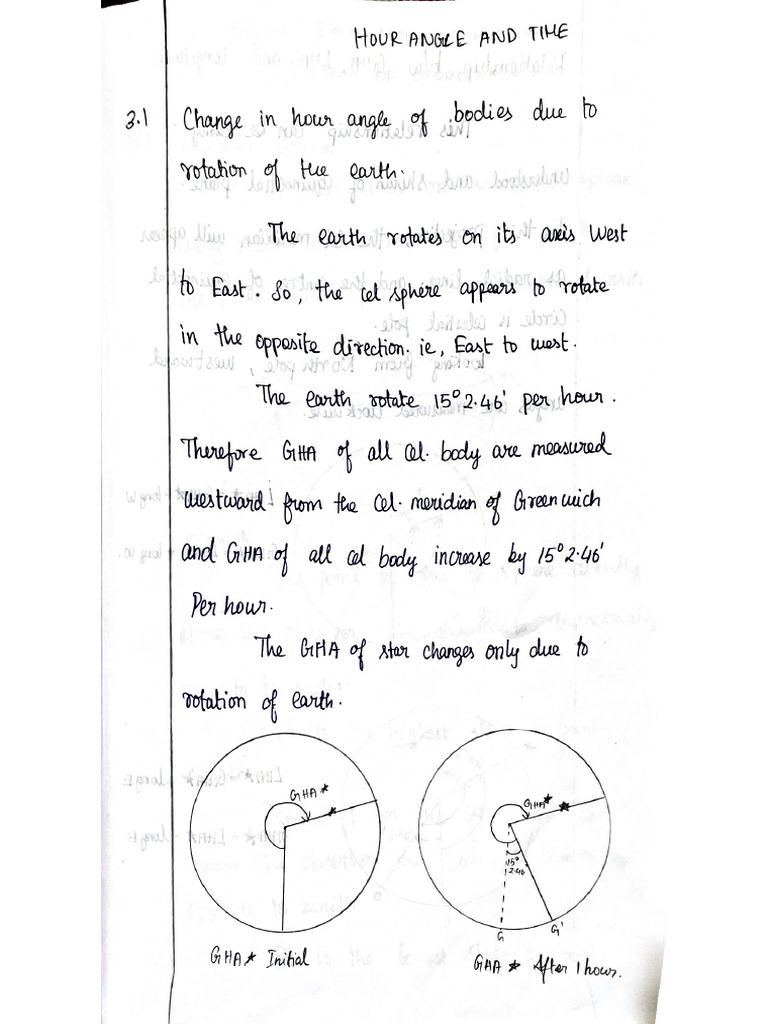 HOUR ANGLE AND TIME
3.1 Change in hour angle of bodies due to
rotation of the earth.
The earth rotates on its axis West
to East. So, the cel sphere appears to rotate
in the opposite direction. ie, East to west.
The earth rotate 15° 2.46' per hour.
Therefore GHA of all cel. body are measured
westward from the cel. meridian of Greenwich
and GHA of all cel body increase by 15° 2.46'
Per hour.
The GHA of star changes only due to
rotation of earth.
GHA★
GHA★
15°
2.46
G
G'
GHA★ Initial
GHA ★ After 1 hour.